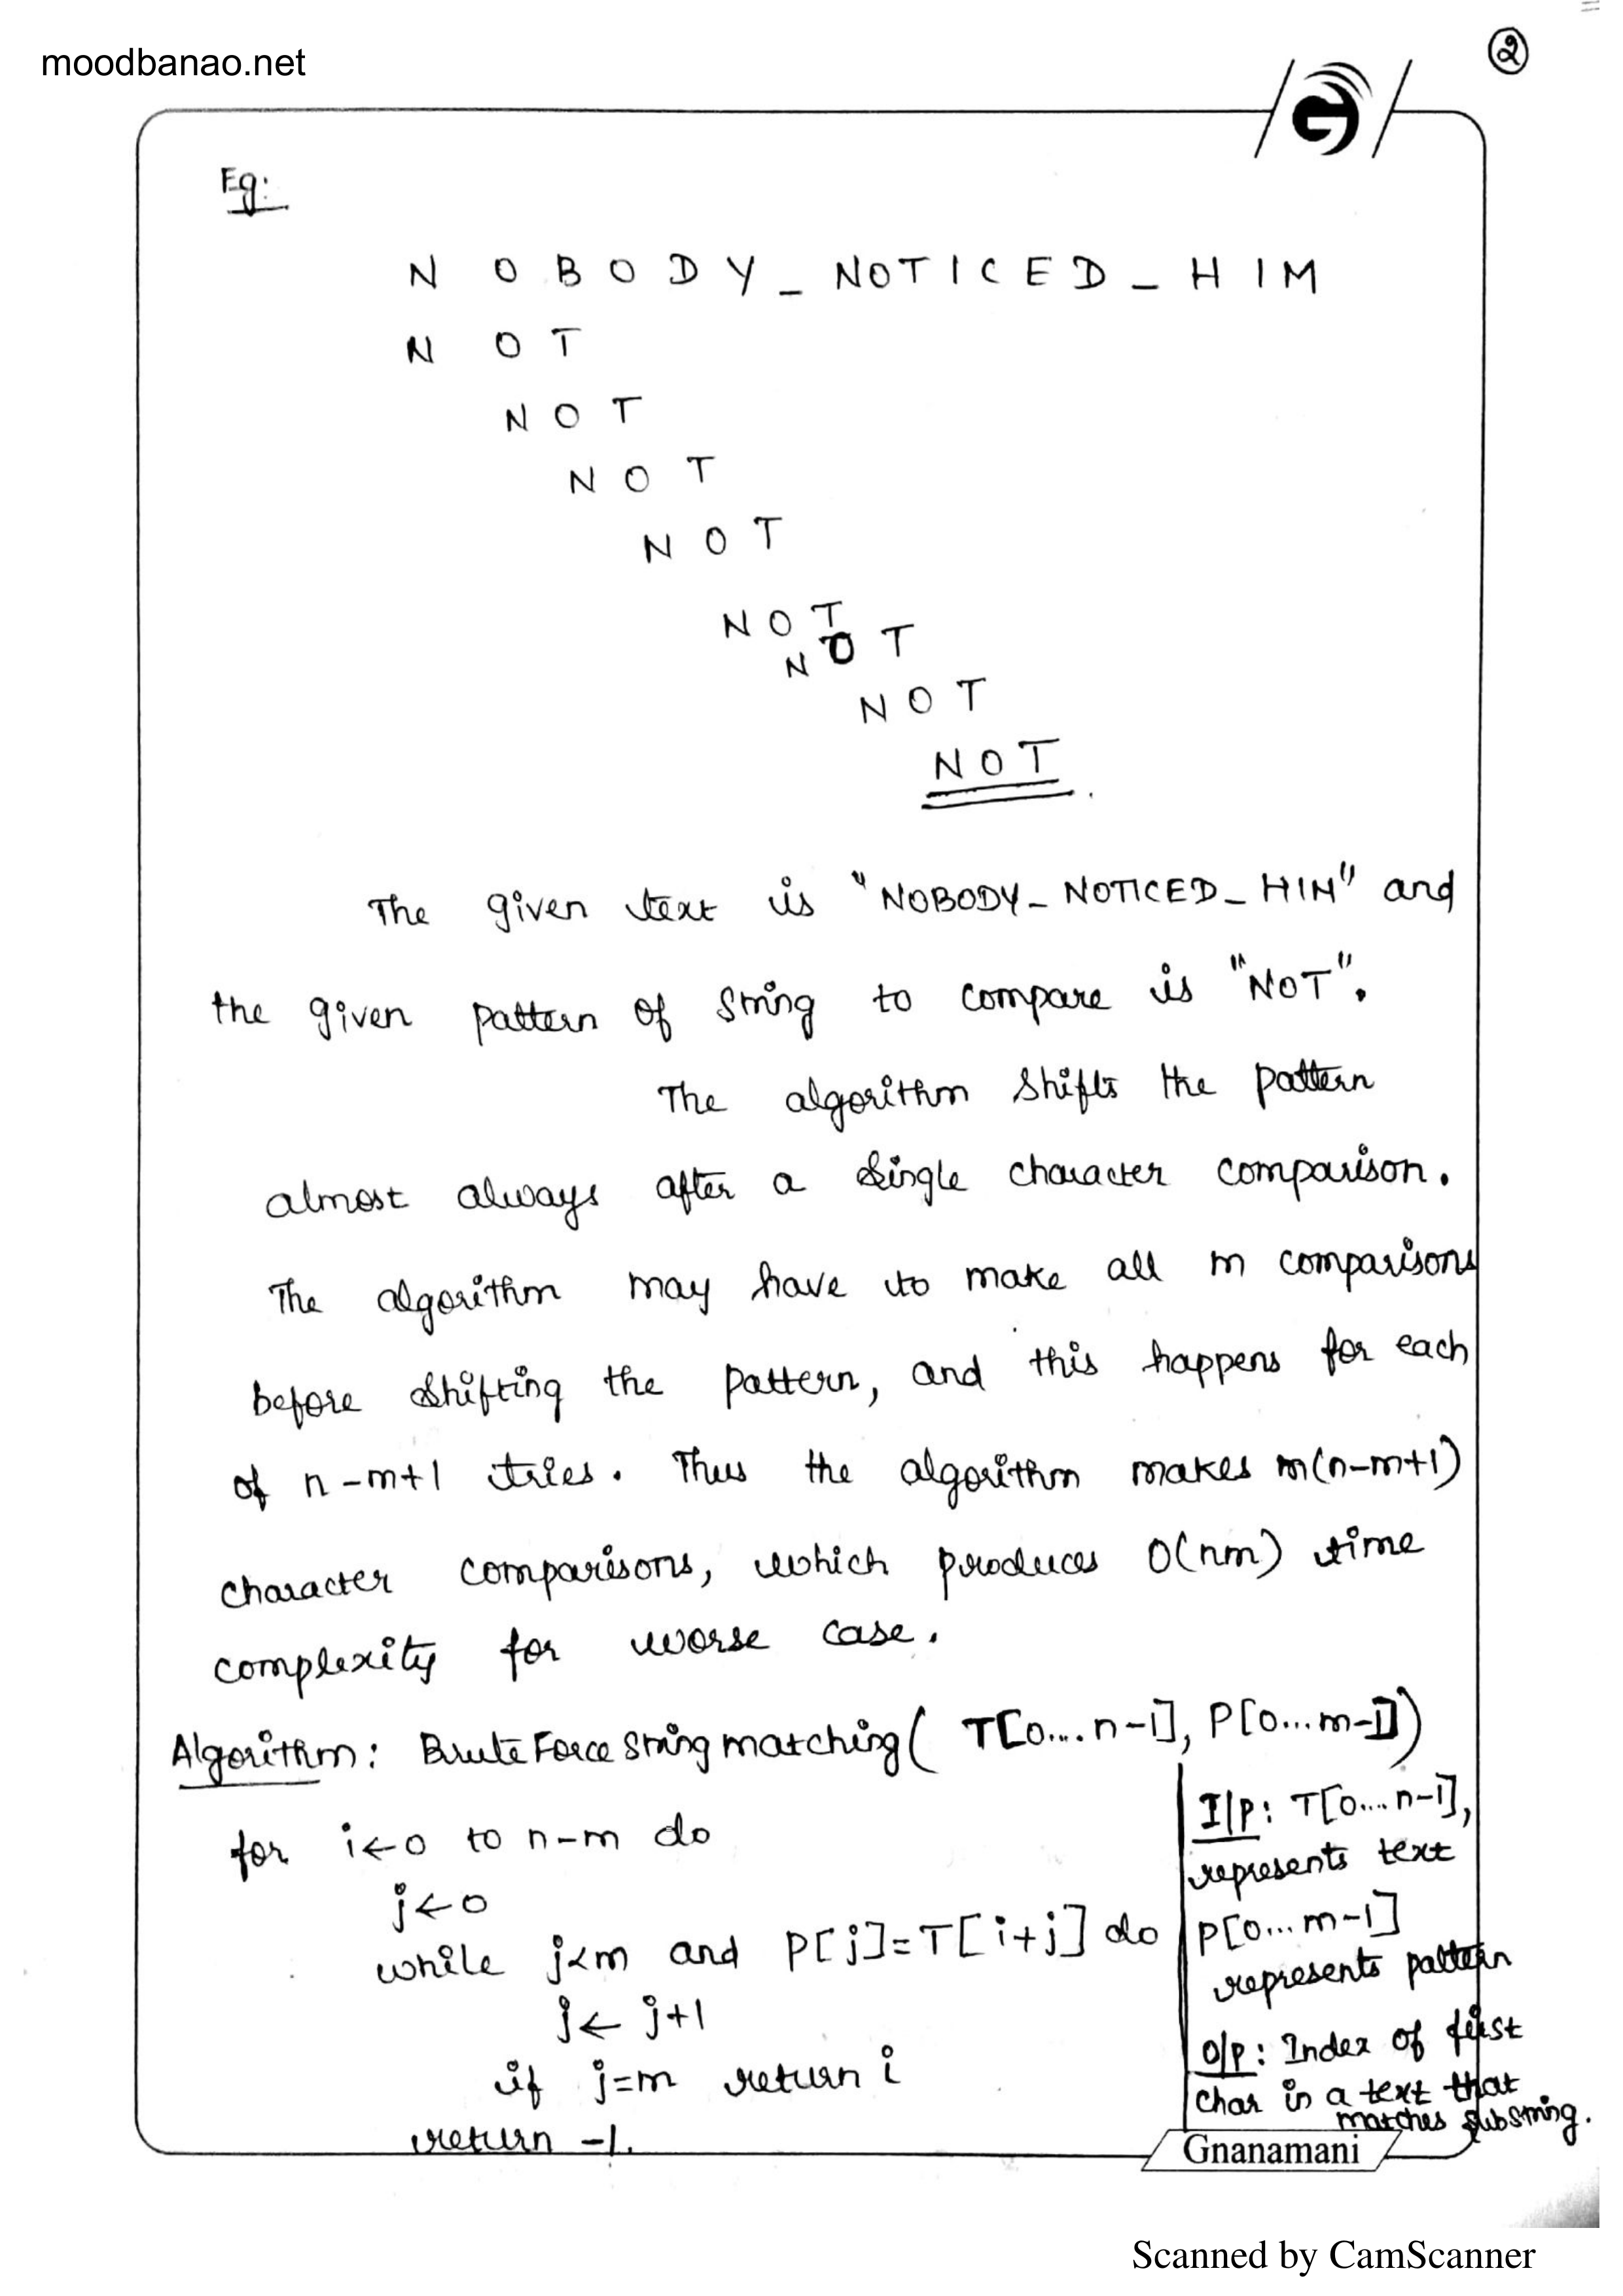 moodbanao.net
2
G
Eg:
N O B O D Y _ N O T I C E D _ H I M
N O T
N O T
N O T
N O T
N O T
N O T
N O T
N O T.
The given text is "NOBODY_NOTICED_HIM" and
the given pattern of string to compare is "NOT".
The algorithm shifts the pattern
almost always after a single character comparison.
The algorithm may have to make all m comparisons
before shifting the pattern, and this happens for each
of n-m+1 tries. Thus the algorithm makes m(n-m+1)
character comparisons, which produces O(nm) time
complexity for worse case.
Algorithm: BruteForce String matching( T[0....n-1], P[0...m-1])
for i←0 to n-m do
j←0
while j<m and P[j]=T[i+j] do
j← j+1
if j=m return i
return -1.
I/P: T[0....n-1],
represents text
P[0...m-1]
represents pattern
O/P: Index of first
char in a text that
matches substring.
Gnanamani
Scanned by CamScanner